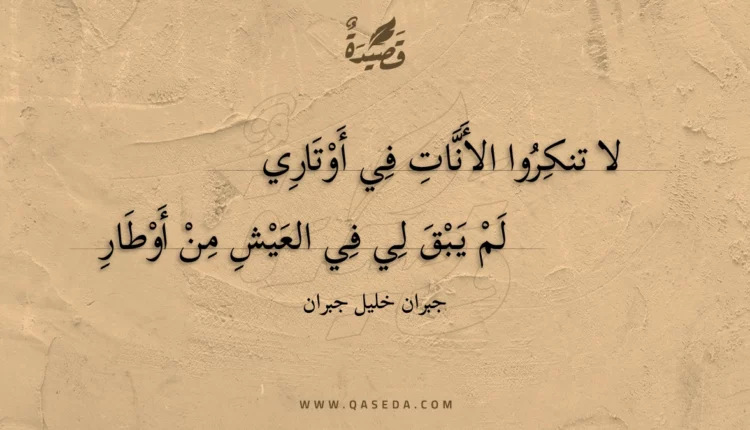 قَصِيدَةٌ
لا تنكِرُوا الأَنَّاتِ فِي أَوْتَارِي
لَمْ يَبْقَ لِي فِي العَيْشِ مِنْ أَوْطَارِ
جبران خليل جبران
WWW.QASEDA.COM